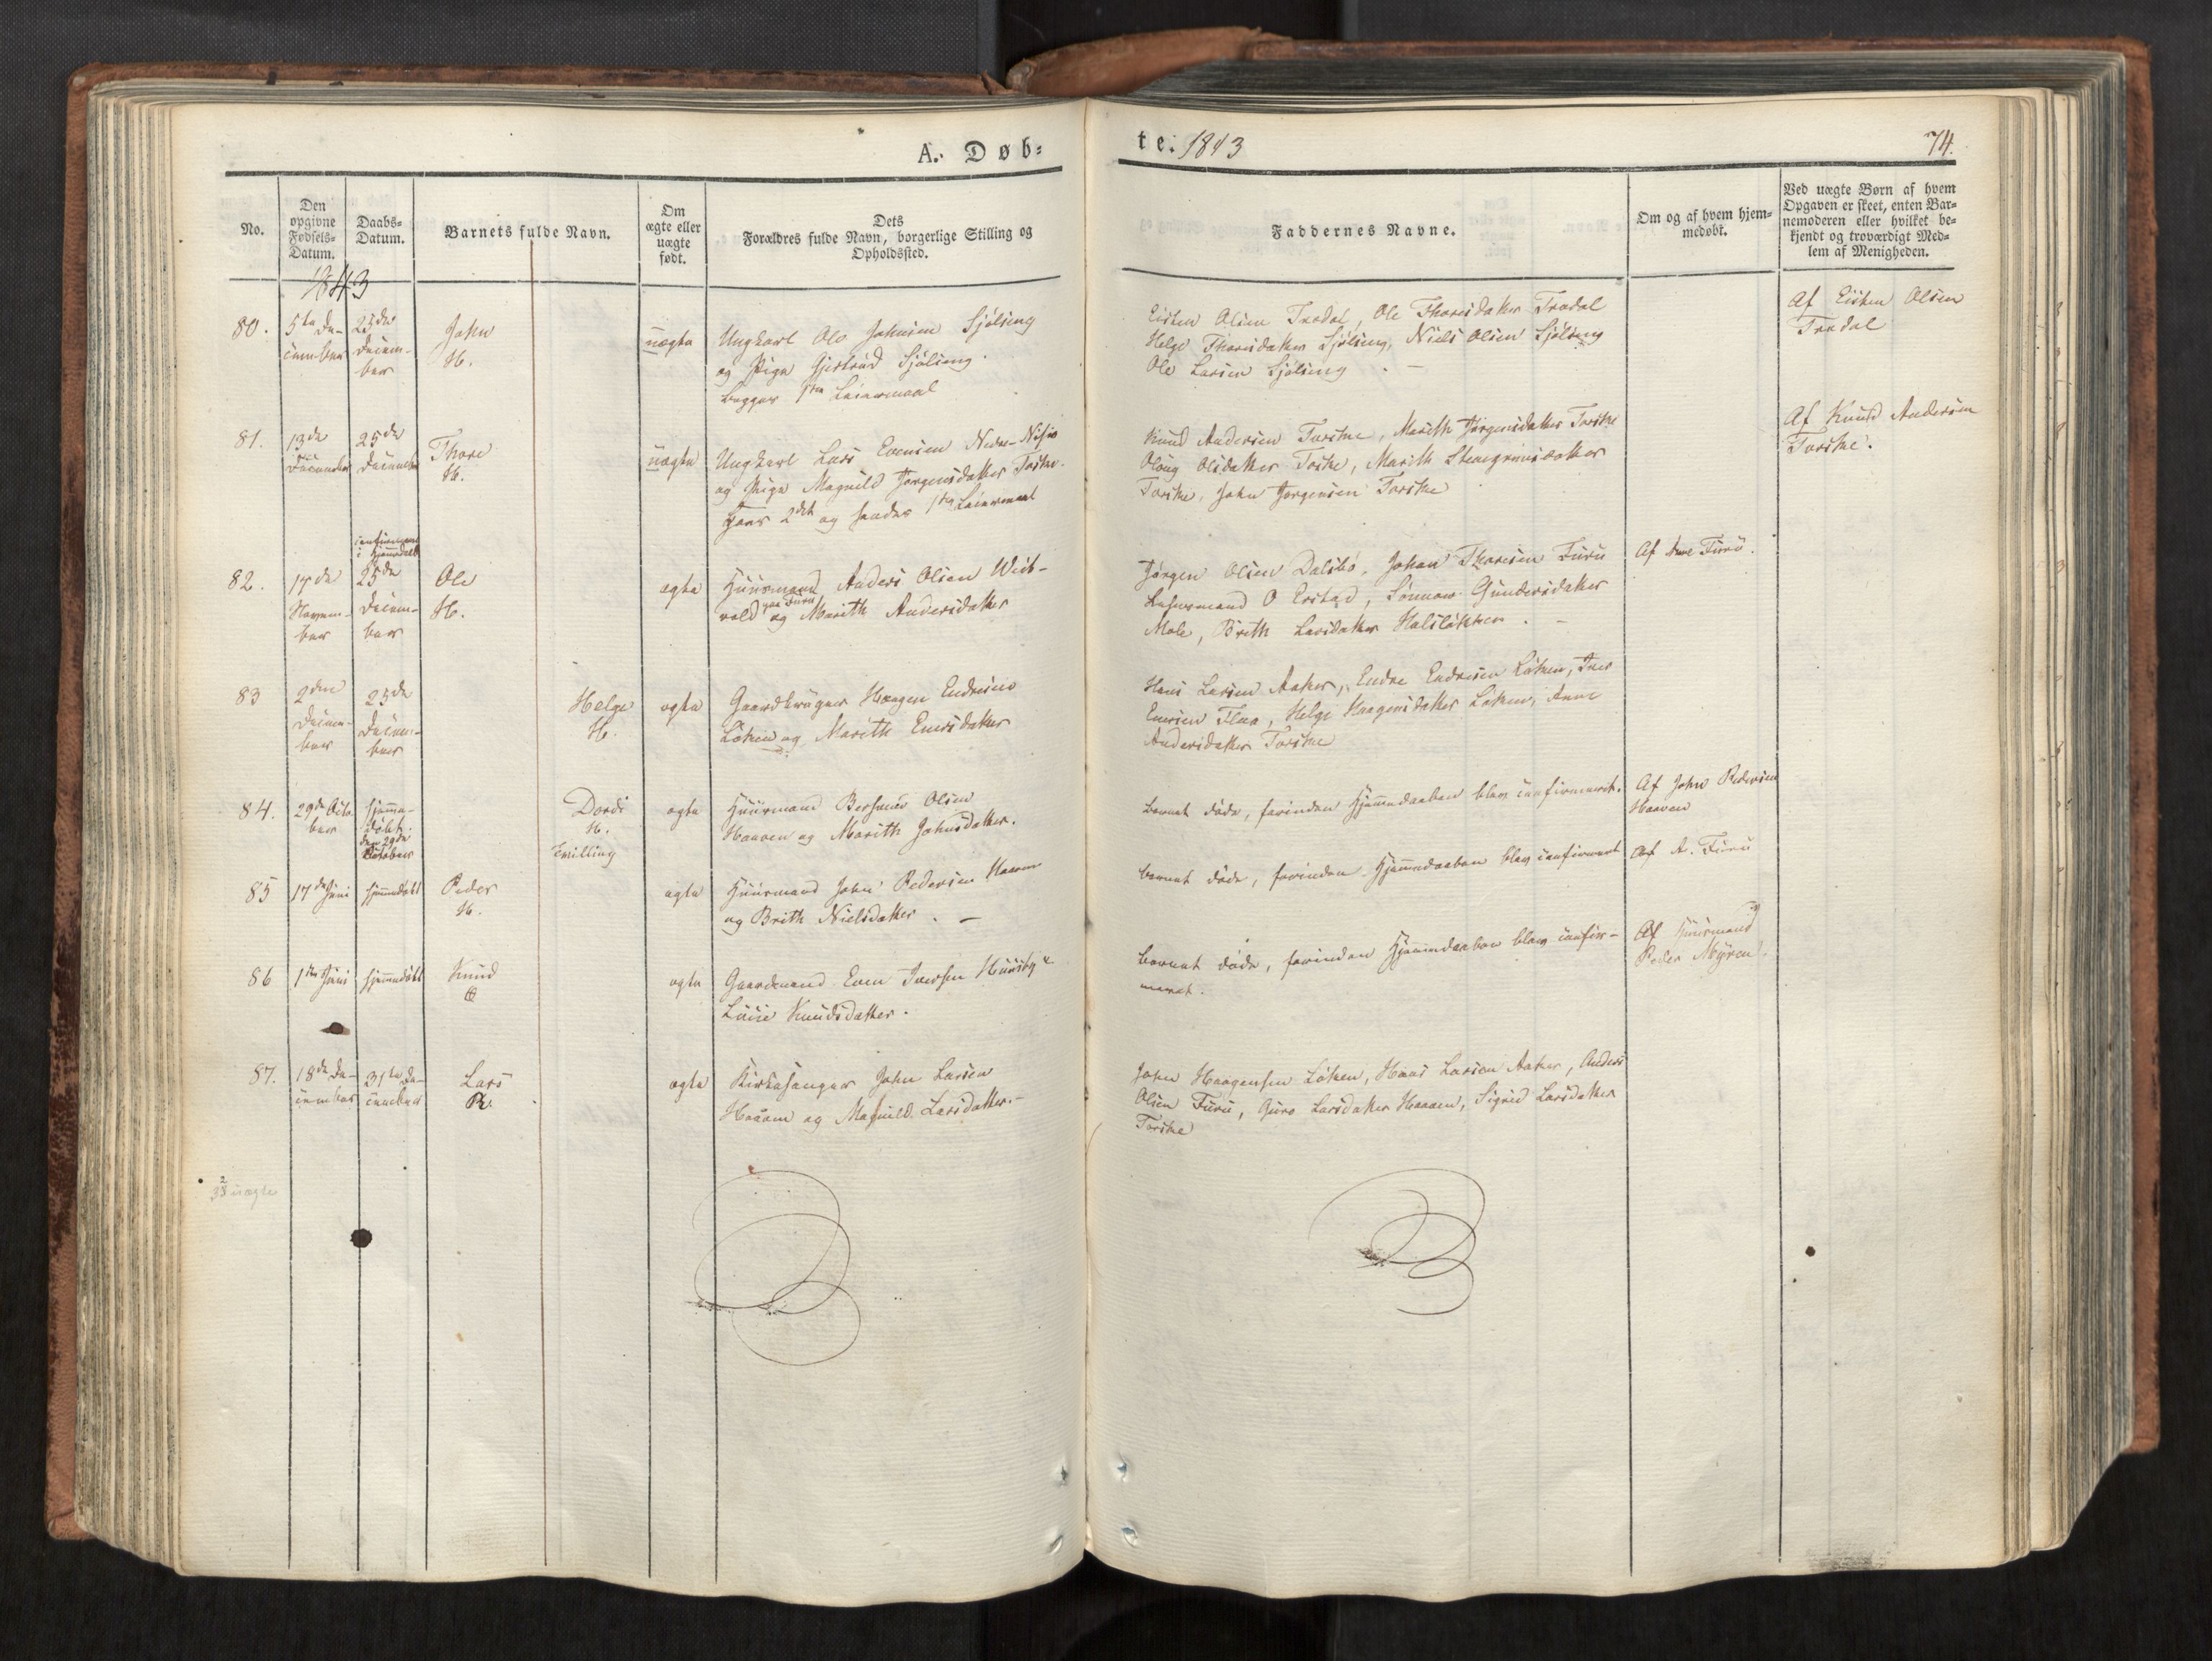 A. Døb=
te. 1843
74.
No.
Den opgivne Fødsels= Datum.
Daabs= Datum.
Barnets fulde Navn.
Om ægte eller uægte født.
Dets Forældres fulde Navn, borgerlige Stilling og Opholdssted.
Faddernes Navne.
Om og af hvem hjem= medøbt.
Ved uægte Børn af hvem Opgaven er skeet, enten Bar= nemoderen eller hvilket be= kjendt og troværdigt Med= lem af Menigheden.
1843
80.
5te De-
cember
25de
Decem-
ber
John
H.
uægte
Ungkarl Ole Johnsen Sjølseng
og Pige Gjertrud Sjølseng.
begges 1ste Leiermaal
Eisten Olsen Trædal, Ole Thoresdatter Trædal
Helge Thoresdatter Sjølseng, Niels Olsen Sjølseng
Ole Larsen Sjølseng . –
Af Eisten Olsen
Trædal
81.
13de
December
25de
December
Thore
H.
uægte
Ungkarl Lars Evensen Nedre-
og Pige Magnild Jørgensdatter Torske.
Hans 2det og hendes 1ste Leiermaal
Knud Andersen Torske, Marith Jørgensdatter Torske
Oloug Olsdatter Torske, Marith Steengrimsdatter
Torske, John Jørgensen Torske
Af Knud Andersen
Torske.
confirmeret
i Hjemmedaab
82.
17de
Novem-
ber
25de
Decem-
ber
Ole
H.
ægte
Huusmand Anders Olsen Weis-
vold paa Furu og Marith Andersdatter
Jørgen Olsen Dalsbø, Johan Thoresen Furu
Lehnsmand O Erstad, Sønnow Gundersdatter
Mole, Brith Larsdatter Halsløkken . –
Af Arne Furu.
83
2den
Decem-
ber
25de
Decem-
ber
Helge
H.
ægte
Gaardbruger Haagen Endresen
Løken og Marith Enersdatter
Hans Larsen Aaker, Endre Endresen Løken, Iver
Enersen Flaa, Helge Haagensdatter Løken, Anne
Andersdatter Torske
84.
29de Octo-
ber
hjemme-
døbt.
den 29de
October
Dordi
H.
Tvilling
ægte
Huusmand Bersvend Olsen
Haaven og Marith Johnsdatter.
Barnet døde, forinden Hjemmedaaben blev confirmeret.
Af John Pedersen
Haaven
85
17de Juni
hjemmedøbt
Peder
H.
ægte
Huusmand John Pedersen Haaven
og Brith Nielsdatter . –
Barnet døde, forinden Hjemmedaaben blev confirmeret
Af A. Furu
86
1ste Juni
hjemmedøbt
Knud
ægte
Gaardmand Even Iversen Huusby &
Luise Knudsdatter.
Barnet døde, forinden Hjemmedaaben blev confir-
meret.
Af Huusmand
Peder Myren.
87.
18de De-
cember
31te De-
cember
Lars
R.
ægte
Kirkesanger John Larsen
Haaven og Magnild Larsdatter.–
John Haagensen Løken, Hans Larsen Aaker, Anders
Olsen Furu, Guro Larsdatter Haaven, Sigrid Larsdatter
Torske
uægte